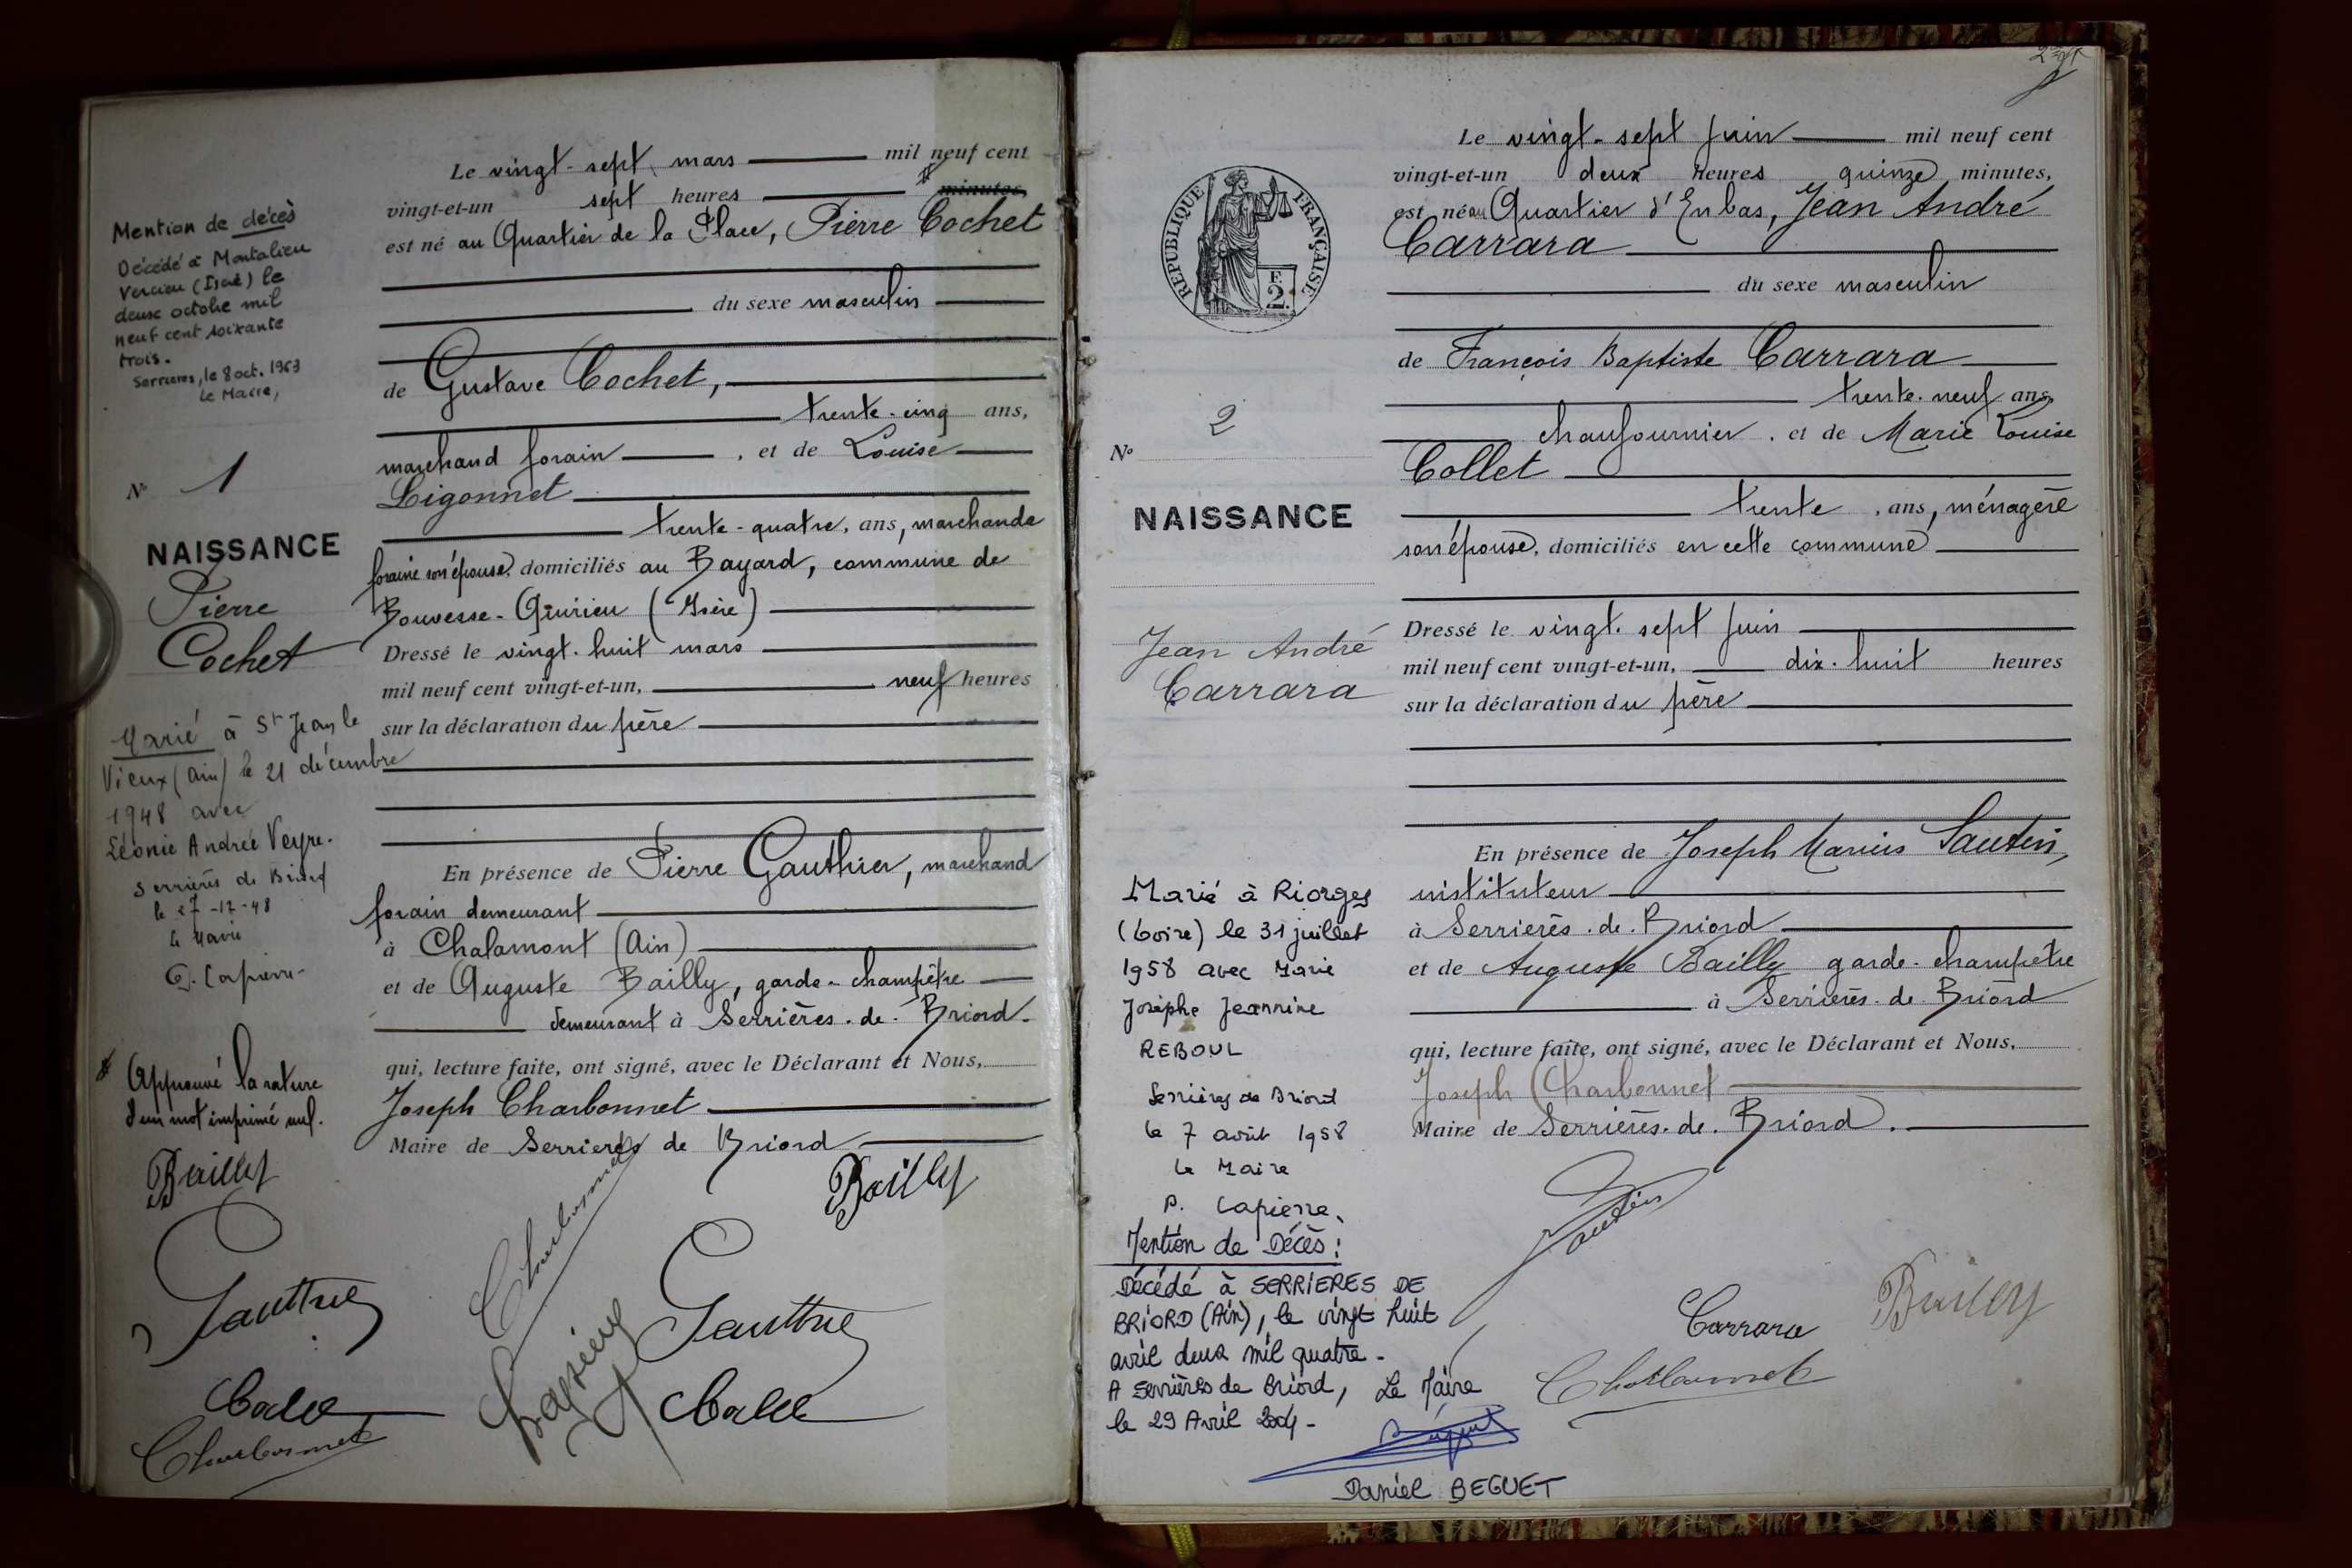 Mention de décès
Décédé à Montalieu
Vercieu (Isère) le
deux octobre mil
neuf cent soixante
trois.
Serrieres, le 8 oct. 1963
Le Maire,
N° 1
NAISSANCE
Pierre
Cochet
Marié à St Jean le
Vieux (Ain) le 21 décembre
1948 avec
Léonie Andrée Veyre.
Serrières de Briord
le 27-12-48
Le Maire
Lapierre
Approuvé la rature
d'un mot imprimé nul.
Bailly
Gauthier
Charbonnet
Le vingt-sept mars mil neuf cent
vingt-et-un sept heures minutes,
est né au Quartier de la Place, Pierre Cochet
du sexe masculin
de Gustave Cochet,
trente-cinq ans,
marchand forain , et de Louise
Ligonnet
trente-quatre, ans, marchande
foraine son épouse, domiciliés au Bayard, commune de
Bouvesse-Quirieu (Isère)
Dressé le vingt-huit mars
mil neuf cent vingt-et-un, neuf heures
sur la déclaration du père
En présence de Pierre Gauthier, marchand
forain demeurant
à Chalamont (Ain)
et de Auguste Bailly, garde-champêtre
demeurant à Serrières-de-Briord.
qui, lecture faite, ont signé, avec le Déclarant et Nous,
Joseph Charbonnet
Maire de Serrieres de Briord
Bailly
Charbonnet
Gauthier
2
RÉPUBLIQUE FRANÇAISE
F.
2.
N° 2
NAISSANCE
Jean André
Carrara
Marié à Riorges
(Loire) le 31 juillet
1958 avec Marie
Josèphe Jeannine
REBOUL
Serrières de Briord
le 7 août 1958
Le Maire
P. Lapierre
Mention de Décès :
Décédé à SERRIERES DE
BRIORD (Ain), le vingt huit
avril deux mil quatre -
A Serrières de Briord, Le Maire
le 29 Avril 2004 -
Daniel BEGUET
Le vingt-sept juin mil neuf cent
vingt-et-un deux heures quinze minutes,
est né au Quartier d'En bas, Jean André
Carrara
du sexe masculin
de François Baptiste Carrara
trente-neuf ans,
chaufournier , et de Marie Louise
Collet
trente , ans, ménagère
son épouse, domiciliés en cette commune
Dressé le vingt-sept juin
mil neuf cent vingt-et-un, dix-huit heures
sur la déclaration du père
En présence de Joseph Marius
instituteur
à Serrières-de-Briord
et de Auguste Bailly garde-champêtre
à Serrières-de-Briord
qui, lecture faite, ont signé, avec le Déclarant et Nous,
Joseph Charbonnet
Maire de Serrières-de-Briord.
Carrara
Bailly
Charbonnet